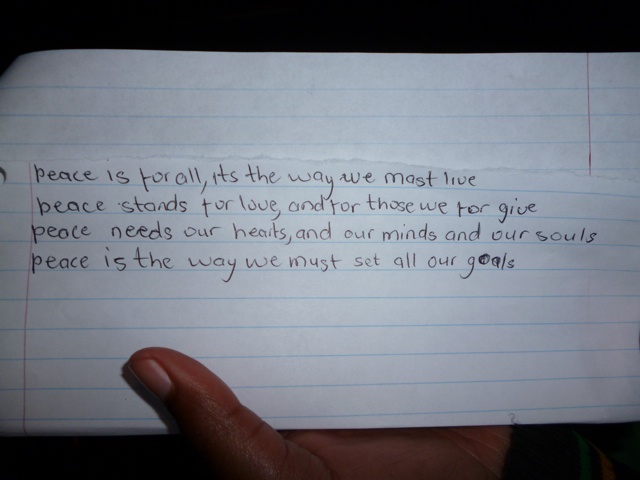 peace is for all, its the way we mast live
peace stands for love, and for those we for give
peace needs our hearts, and our minds and our souls
peace is the way we must set all our goals